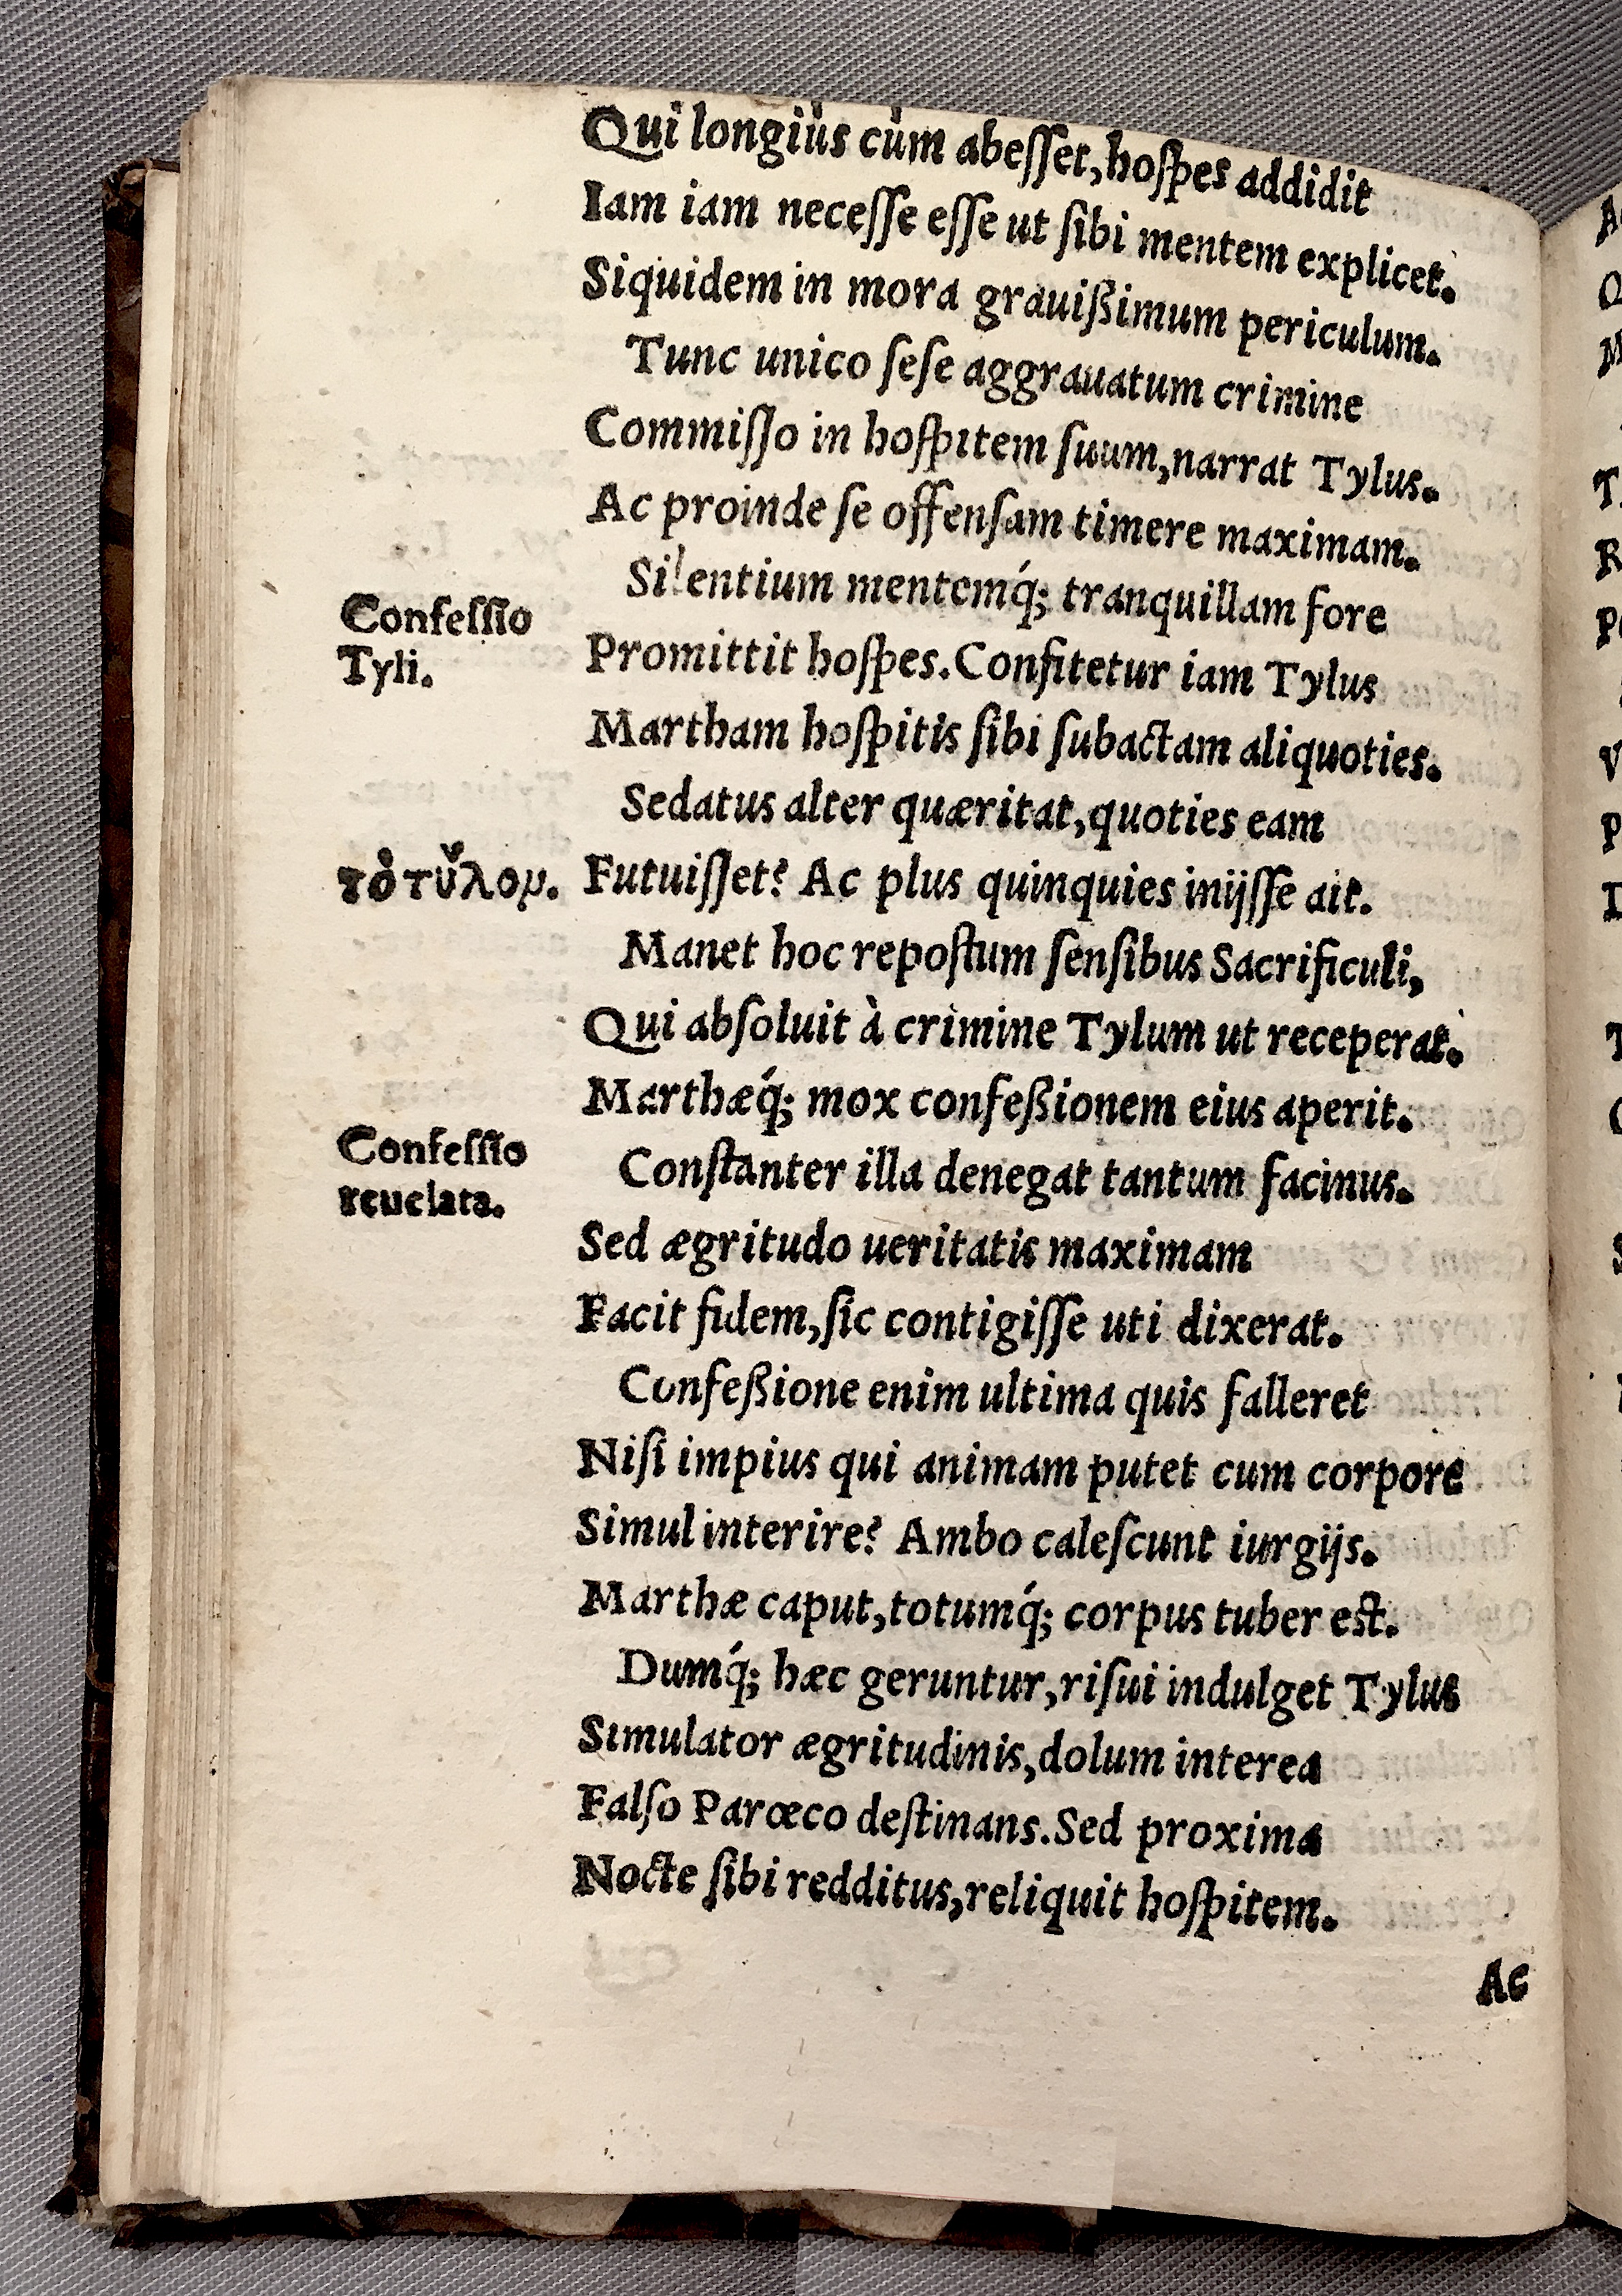 Qui longiùs cùm abeſſet, hoſpes addidit
Iam iam neceſſe eſſe ut ſibi mentem explicet.
Siquidem in mora grauißimum periculum.
Tunc unico ſeſe aggrauatum crimine
Commiſſo in hoſpitem ſuum, narrat Tylus.
Ac proinde ſe offenſam timere maximam.
Silentium mentemq́; tranquillam fore
Confeſſio
Tyli.
Promittit hoſpes. Confitetur iam Tylus
Martham hoſpitis ſibi ſubactam aliquoties.
Sedatus alter quæritat, quoties eam
τὸ τύλομ.
Futuiſſet? Ac plus quinquies inijſſe ait.
Manet hoc repoſtum ſenſibus Sacrificuli,
Qui abſoluit à crimine Tylum ut receperat.
Marthæq́; mox confeßionem eius aperit.
Confeſſio
reuelata.
Conſtanter illa denegat tantum facinus.
Sed ægritudo ueritatis maximam
Facit fidem, ſic contigiſſe uti dixerat.
Confeßione enim ultima quis falleret
Niſi impius qui animam putet cum corpore
Simul interire? Ambo caleſcunt iurgijs.
Marthæ caput, totumq́; corpus tuber eſt.
Dumq́; hæc geruntur, riſui indulget Tylus
Simulator ægritudinis, dolum interea
Falſo Parœco deſtinans. Sed proxima
Nocte ſibi redditus, reliquit hoſpitem.
Ac